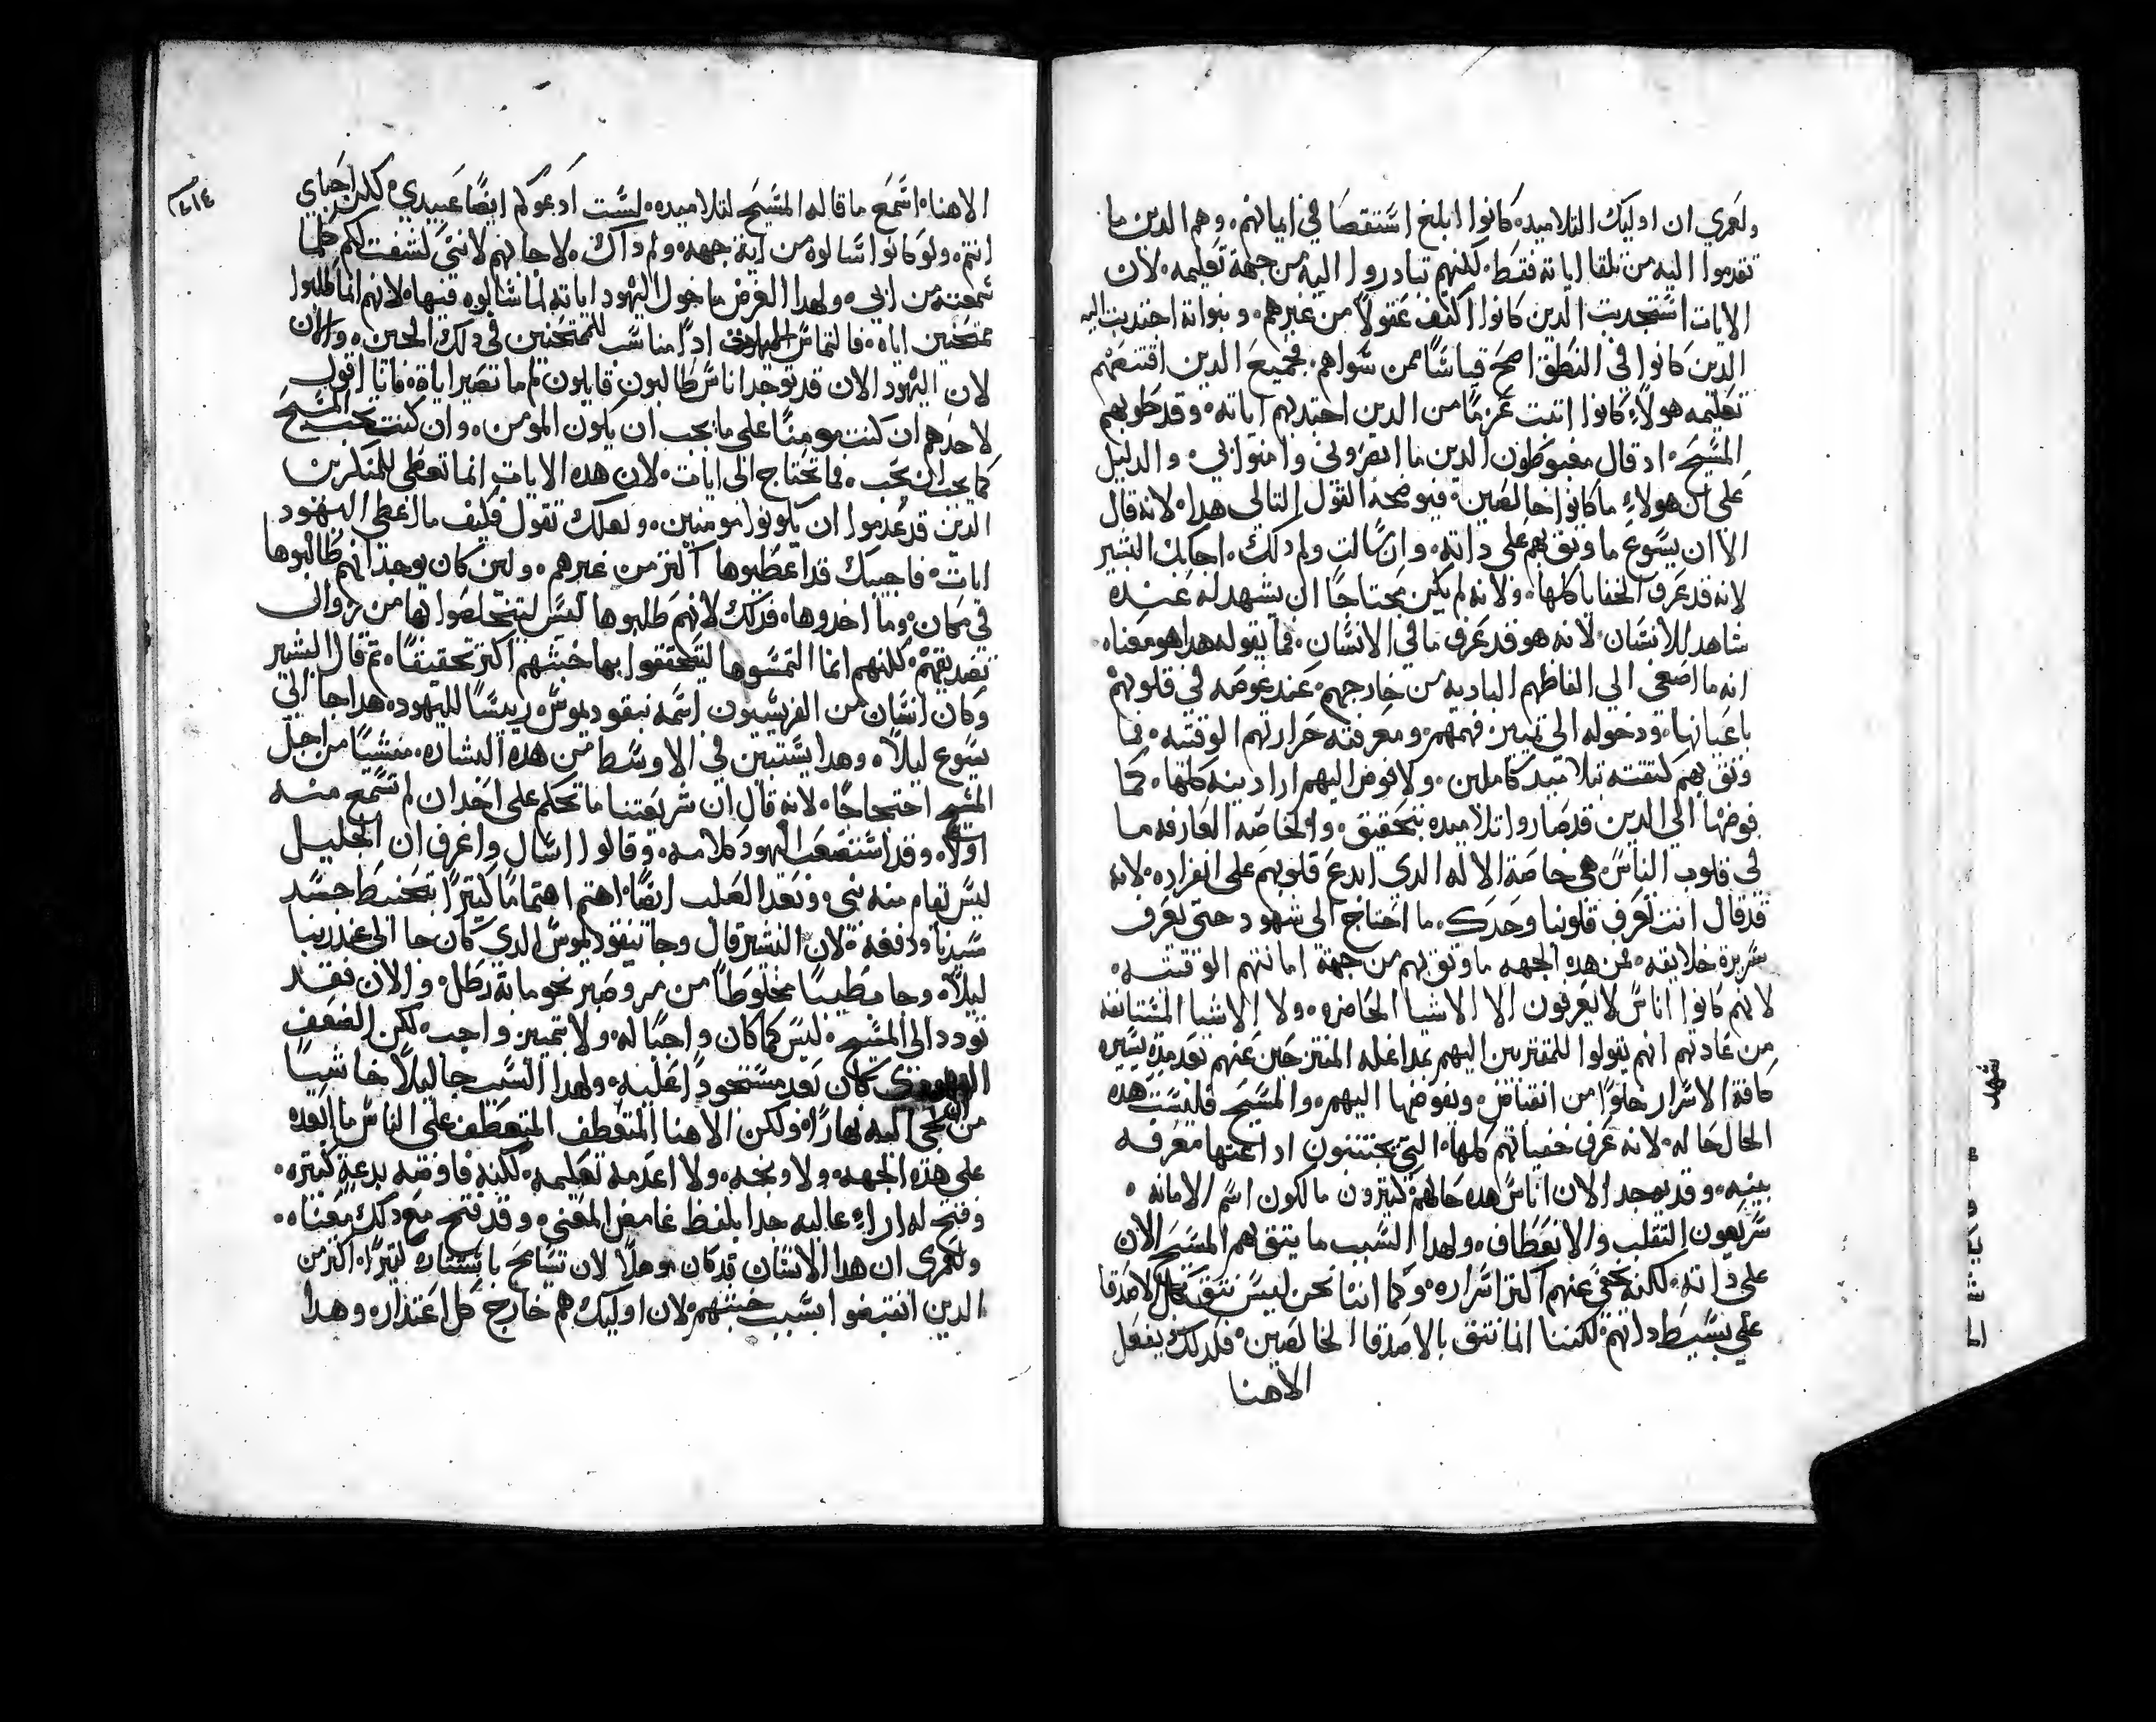 ولعمري ان اوليك التلاميده كانوا ابلغ استقصا في ايمانهم ٠ وهم الدين ما
تقدموا اليه من تلقا اياته فقط ٠ لكنهم تبادروا اليه من جهة تعليمه ٠ لان
الايات استجدبت الدين كانوا اكثف عقولًا من غيرهم ٠ ونبواته اجتدبت اليه
الدين كانوا في النطق اصح قياسًا ممن سواهم ٠ فجميع الدين اقتنصهم
تعليمه هولاء كانوا اتبت عزمًا من الدين اجتدبهم اياته ٠ وقد طوبهم
المسيح ٠ اد قال مغبوطون الدين ما ابصروني وامنوا بي ٠ والدليل
على ان هولاء ما كانوا خالصين ٠ فيوضحه القول التالي هدا ٠ لانه قال
الا ان يسوع ما وثق بهم على داته ٠ وان سالت ولم دلك ٠ اجابك البشير
لانه قد عرف الخفايا كلها ٠ ولانه لم يكن محتاجًا ان يشهد له عنده
شاهد للانسان ٠ لانه هو قد عرف ما في الانسان ٠ فما يقوله هدا هو معناه ٠
انه ما اصغى الي الفاظهم الباديه من خارجهم ٠ عند غوصه في قلوبهم
باعيانها ٠ ودخوله الى تمييز فهمهم ٠ ومعرفته حرارتهم الوقتيه ٠ فما
وثق بهم كثقته بتلاميد كاملين ٠ ولا فوض اليهم ارا دينه كلها ٠ كما
فوضها الي الدين قد صاروا تلاميده بتحقيق ٠ والخاصه العارفه ما
في قلوب الناس هي خاصة الاله الدي ابدع قلوبهم على انفراده ٠ لانه
قد قال انت تعرف قلوبنا وحدك ٠ ما احتاج الى شهود حتى تعرف
سريرة خلايقه ٠ فمن هده الجهه ما وثق بهم من جهة امانتهم الوقتيه ٠
لانهم كانوا اناس لا يعرفون الا الاشيا الحاضره ٠ ولا الاشيا المستانفه
من عادتهم انهم يقولوا للمقتربين اليهم
كافة الاسرار خلوًا من انقباض ٠ ونفوضها اليهم ٠ والمسيح فليست هده
الحال حاله ٠ لانه عرف خفياتهم كلها ٠ التي يجتنون اداعتها معرفه
بينه ٠ وقد يوجد الان اناس هده حالهم كتيرون مالكون اسم الامانه ٠
سريعون التقلب والانعطاف ٠ ولهدا السبب ما يتق بهم المسيح الان
على داته ٠ لكنه يخفي عنهم اكثر اسراره ٠ وكما اننا نحن ليس نتق بكل الاصدقا
علي بسيط داتهم ٠ لكننا انما نتق بالاصدقا الخالصين ٠ فكدلك يفعل
الاهنا
الاهنا ٠ اسمع ما قاله المسيح لتلاميده ٠ لست ادعوكم ايضًا عبيدي ٠ لكن احباي
انتم ٠ ولو كانوا سالوه من اية جهه ٠ ولم داك ٠ لاجابهم لانني كشفت لكم كلما
سمعته من ابي ٠ ولهدا الغرض ما خول اليهود اياته لما سالوه فيها ٠ لانهم انما طلبوا
ممتحنين اياه ٠ فالتماس ادًا مناسب للممتحنين في دلك الحين ٠ والان
لان اليهود الان قد توجد اناس طالبون قايلون لم ما تصير اياة ٠ فانا اقول
لاحدهم ان كنت مومنًا على ما يجب ان يكون المومن ٠ وان كنت تحب المسيح
كما يجب ان يحب ٠ فما تحتاج الى ايات ٠ لان هده الايات انما تعطى للمنكرين
الدين قد عدموا ان يكونوا مومنين ٠ ولعلك تقول فكيف ما اعطى اليهود
ايات ٠ فاجيبك قد اعطيوها اكتر من غيرهم ٠ ولين كان يوجد انهم طالبوها
في مكان وما اخدوها ٠ فدلك لانهم طلبوها ليس ليتخلصوا بها من زوال
تصديقهم ٠ لكنهم انما التمسوها ليتحققوا بها خبثهم اكتر تحقيقًا ٠ تم قال البشير
وكان انسان من الفريسيون اسمه نيقوديموس رييسًا لليهود ٠ هدا جا الي
يسوع ليلًا ٠ وهدا يستبين في الاوسط من هده البشاره ٠ منشيًا من اجل
المسيح احتجاجًا ٠ لانه قال ان شريعتنا ما تحكم على احد ان لم تسمع منه
اولًا ٠ وقد استصعب اليهود كلامه ٠ وقالوا اسال واعرف ان الجليل
ليس يقام منه نبي ٠ وبعد الصلب ايضًا اهتم اهتمامًا كتيرًا بتحنيط جسد
سيدنا ودفنه ٠ لان البشير قال وجا نيقوديموس الدي كان جا الى عند ربنا
ليلًا ٠ وجاب طيبًا مخلوطًا من مر وصبر نحو ماية رطل ٠ والان فقد
تودد الى المسيح ٠ ليس كما كان واجبًا له ٠ ولا بتمييز واجب ٠ لكن الضعف
كان بعد مستحودًا عليه ٠ ولهدا السبب جا ليلًا خاشيًا
من ان يجي اليه نهارًا ٠ ولكن الاهنا المتعطف المتعطف على الناس ما ابعده
على هده الجهه ٠ ولا وبخه ٠ ولا اعدمه تعليمه ٠ لكنه فاوضه بدعة كتيره ٠
وفتح له اراء عاليه جدا بلفظ غامض المعني ٠ وقد فتح مع دلك معناه ٠
ولعمري ان هدا الانسان قد كان موهلًا لان تسامح كتيرًا ٠ اكتر من
الدين بسبب خبثهم ٠ لان اوليك هم خارج كل اعتدار ٠ وهدا